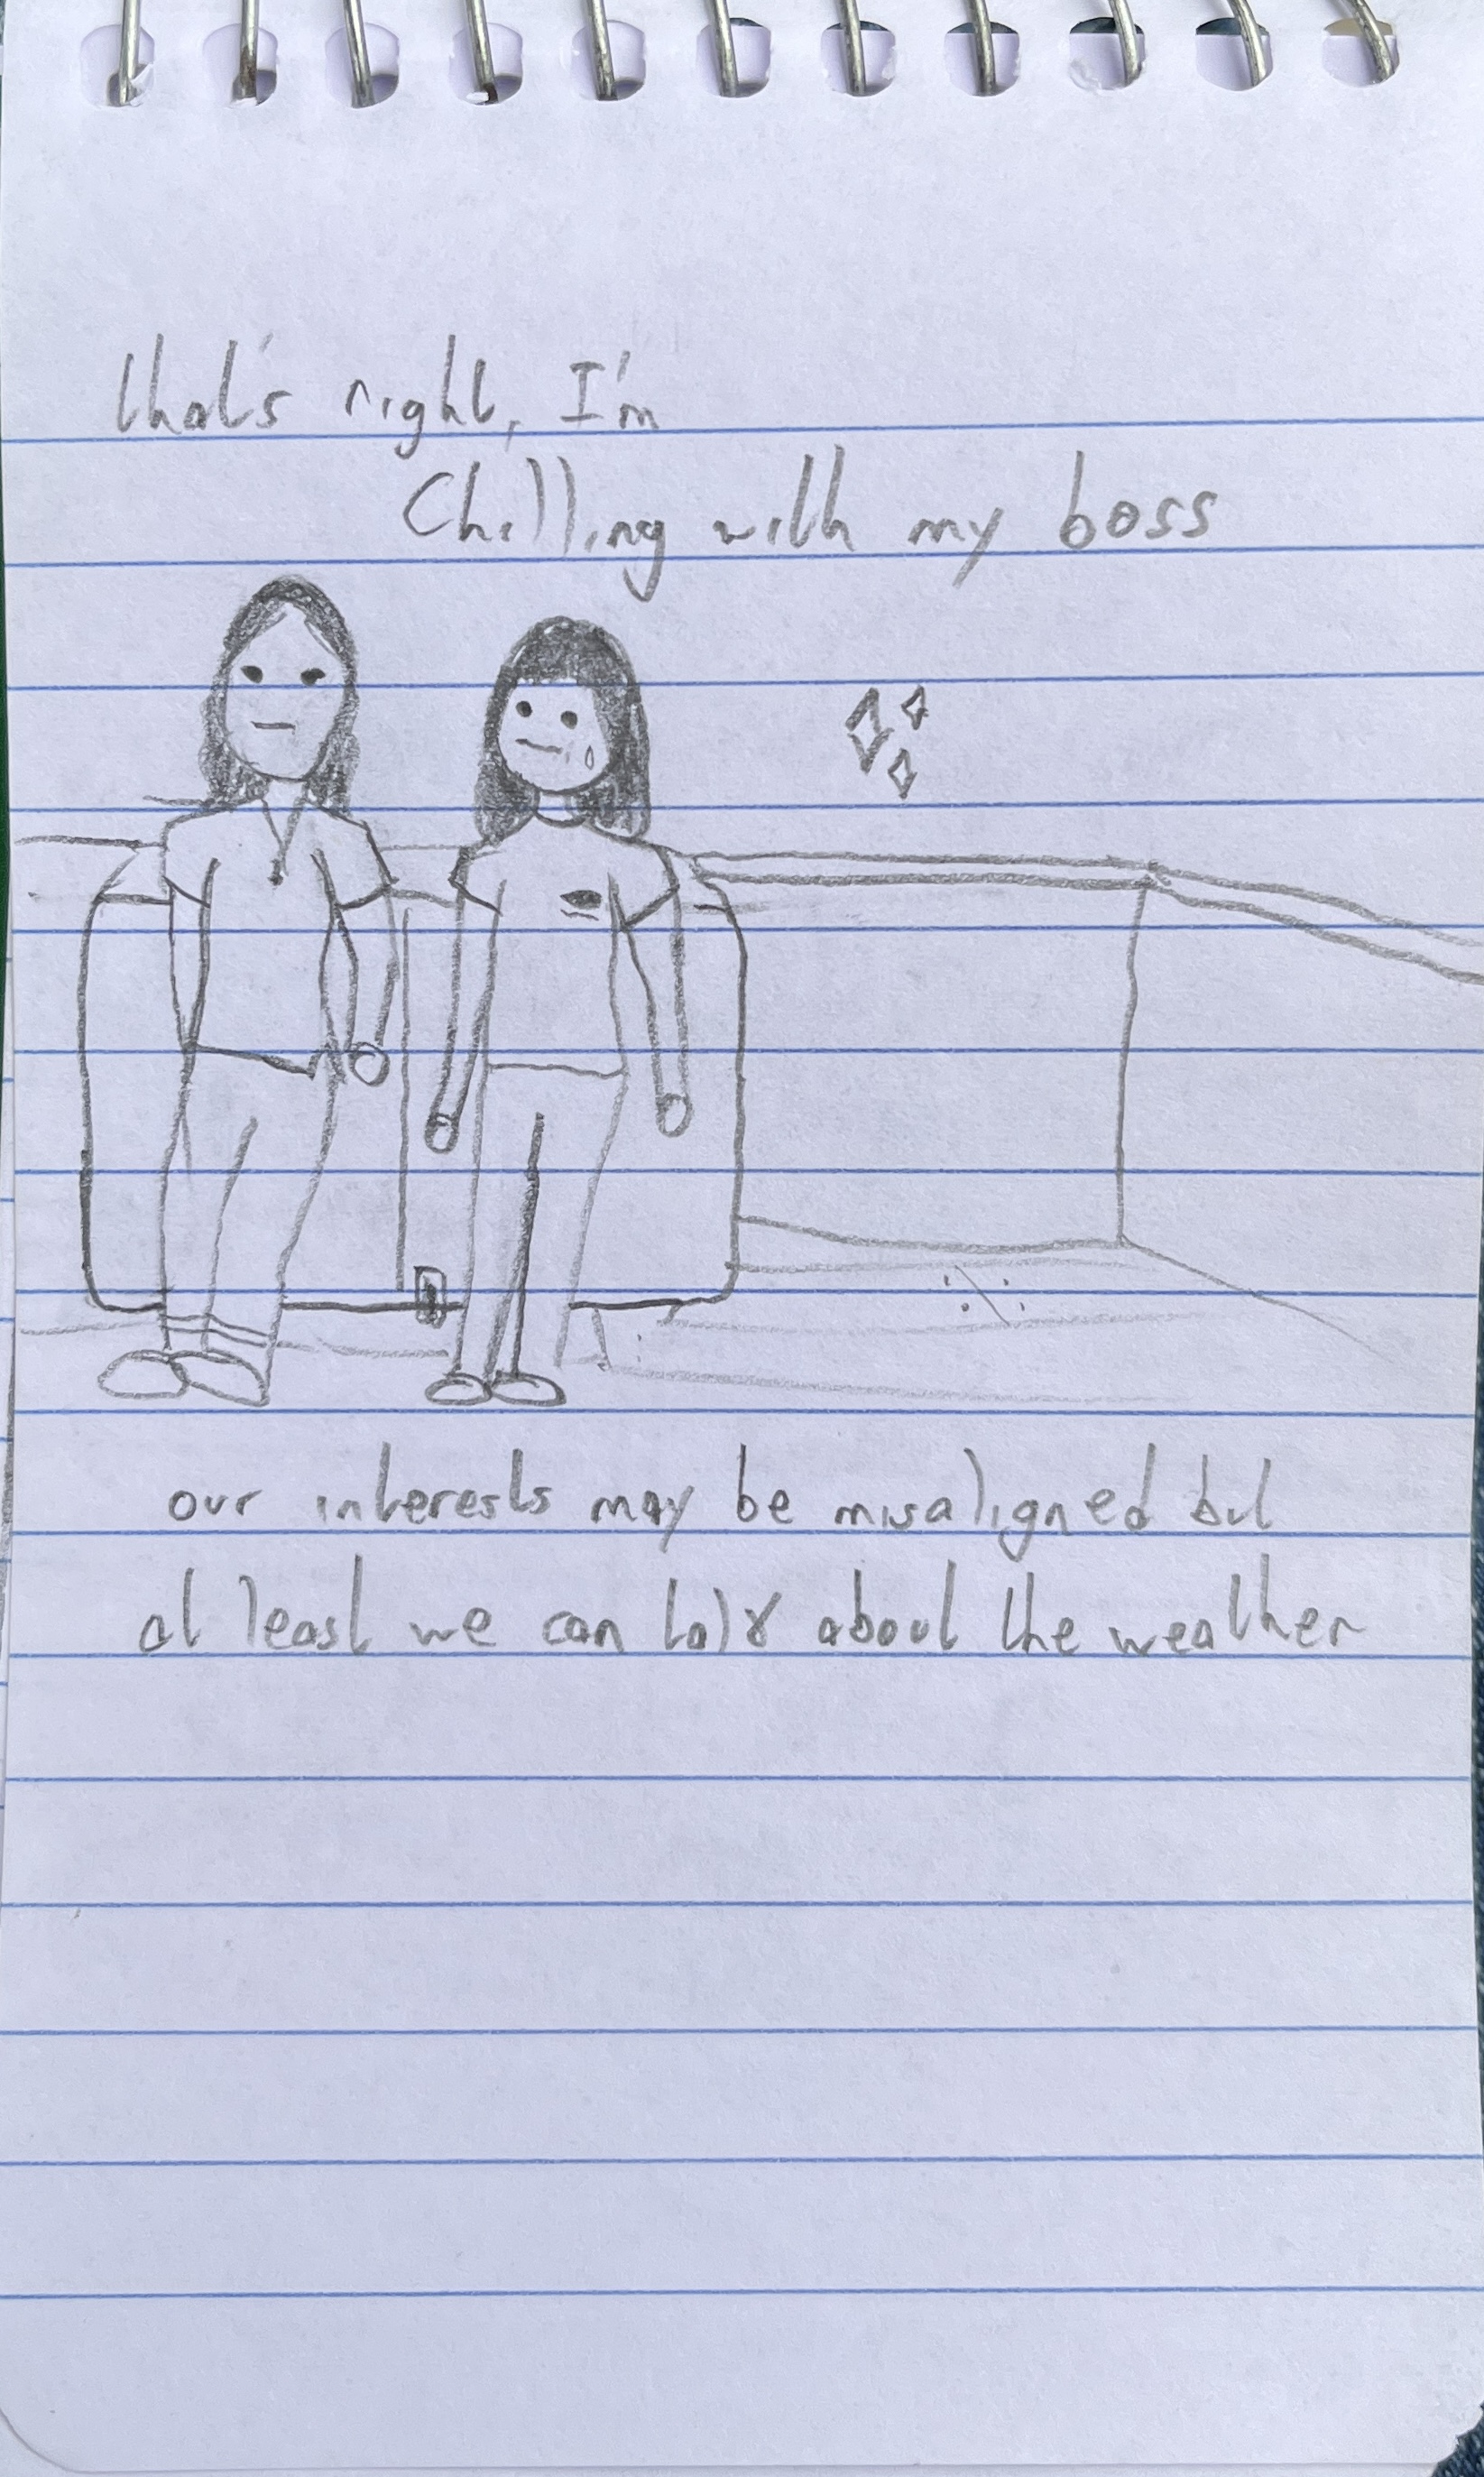 that's right, I'm
Chilling with my boss
our interests may be misaligned but
at least we can talk about the weather